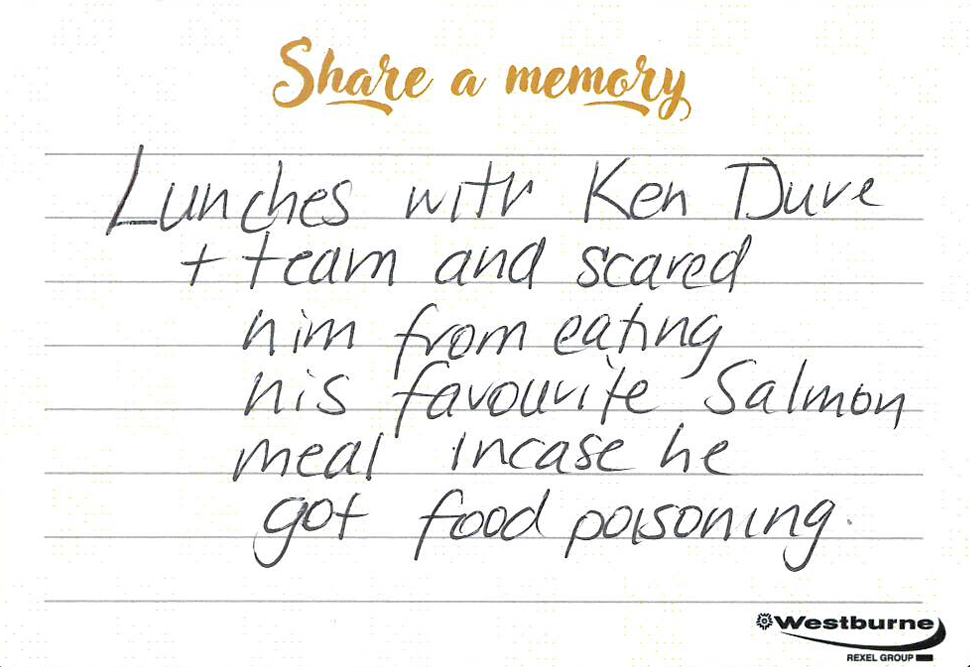 Share a memory
Lunches with Ken Duve
+ team and scared
him from eating
his favourite Salmon
meal incase he
got food poisoning.
Westburne
REXEL GROUP